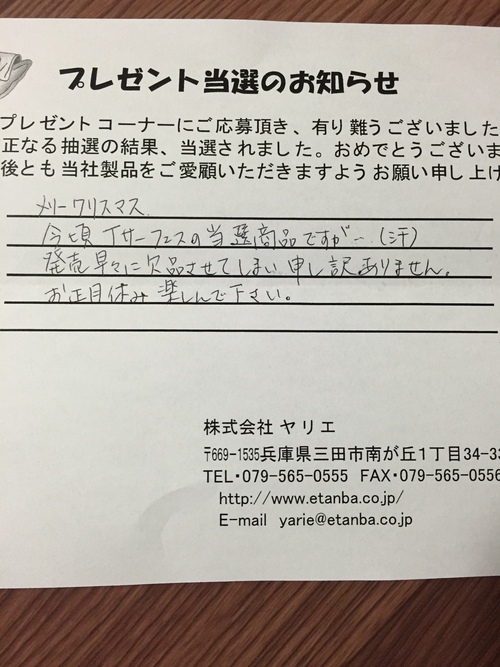 プレゼント当選のお知らせ
プレゼントコーナーにご応募頂き、有り難うございました
正なる抽選の結果、当選されました。おめでとうございま
後とも当社製品をご愛顧いただきますようお願い申し上げ
メリークリスマス
今頃 Tサーフェスの当選商品ですが…(汗)
発売早々に欠品させてしまい 申し訳ありません。
お正月休み 楽しんで下さい。
株式会社 ヤリエ
〒669-1535兵庫県三田市南が丘1丁目34-33
TEL・079-565-0555 FAX・079-565-0556
http://www.etanba.co.jp/
E-mail yarie@etanba.co.jp